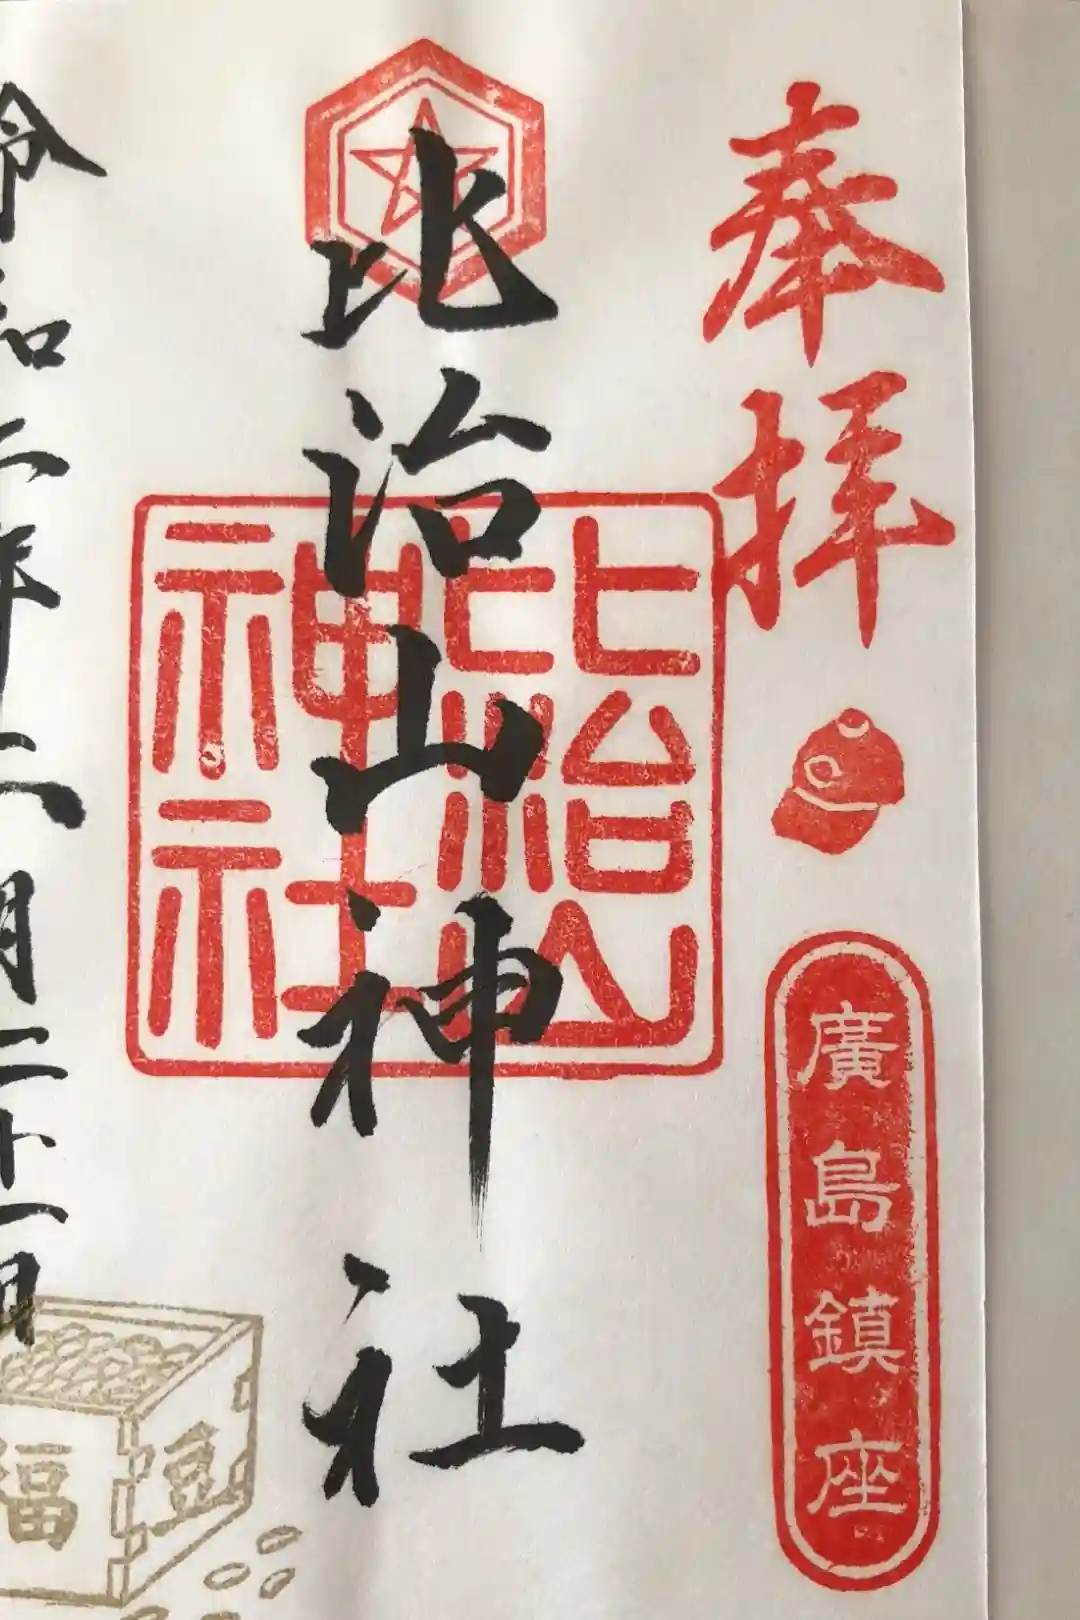 奉拝
廣島鎮座
比治山神社
比治山
神社
令和二年二月二十一日
福豆